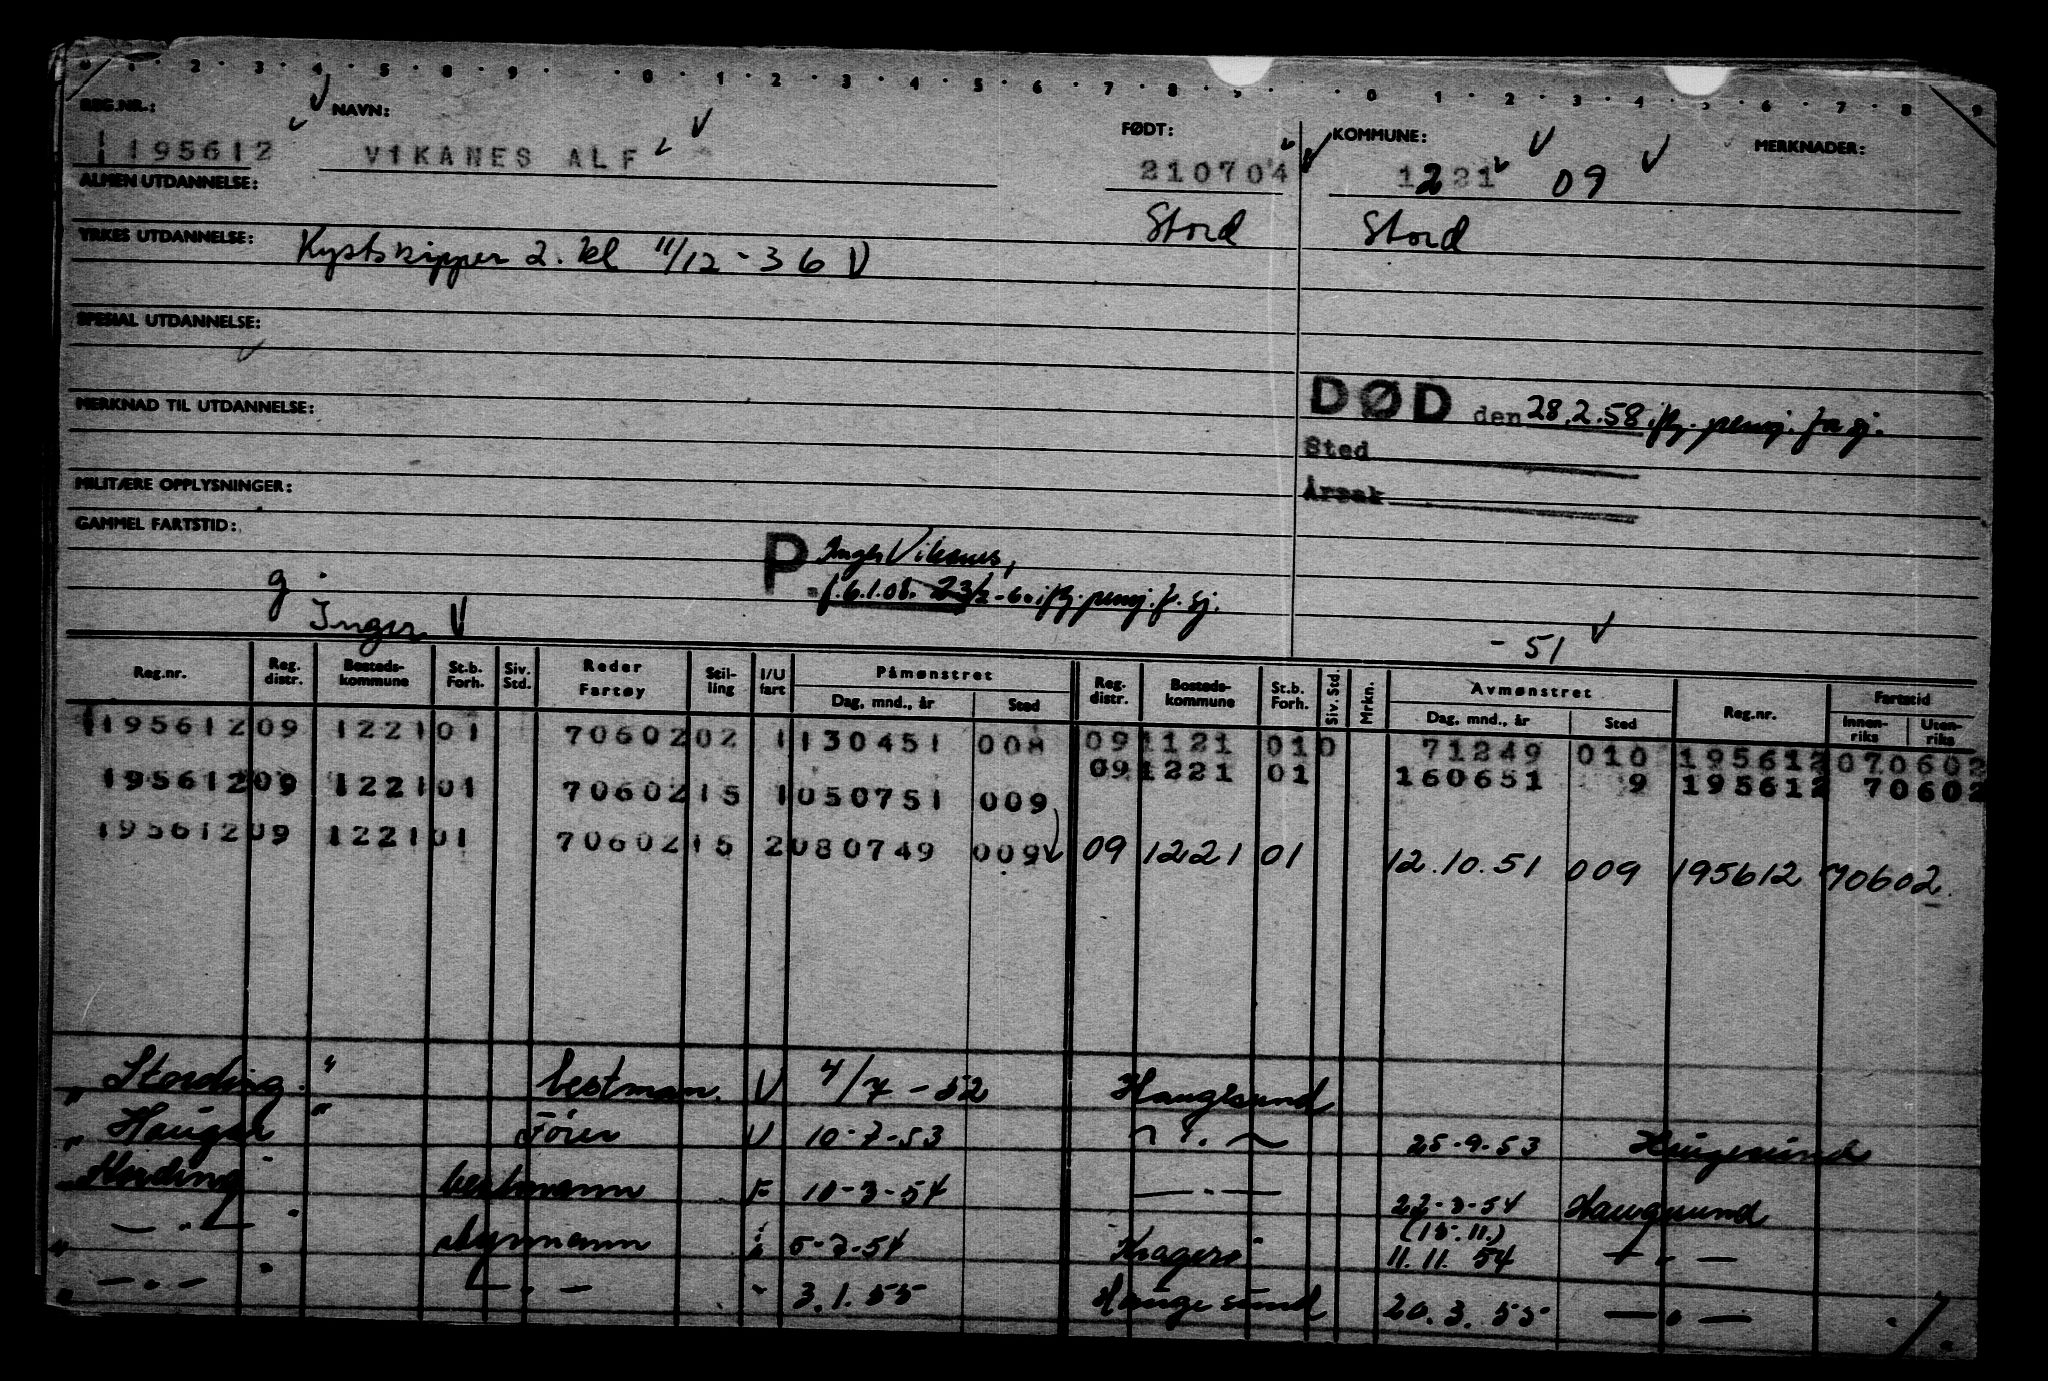 0 1 2 3 4 5 8 9 0 1 2 3 4 5 6 7 8 9 0 1 2 3 4 5 6 7 8 9
REG.NR.: NAVN: FØDT: KOMMUNE: MERKNADER:
195612 VIKANES ALF 210704 1221 09
ALMEN UTDANNELSE: Stord Stord
YRKES UTDANNELSE: Kystskipper 2. kl 11/12-36
SPESIAL UTDANNELSE:
MERKNAD TIL UTDANNELSE: DØD den 28.2.58 ifg. pensj. for sj.
Sted
Årsak
MILITÆRE OPPLYSNINGER:
GAMMEL FARTSTID:
P Inger Vikanes,
f. 6.1.08. 23/2-60 ifg. pensj. f. sj.
g
Inger - 51
Reg.nr. Reg. distr. Bosteds-kommune St.b. Forh. Siv. Std. Reder Fartøy Stil-ling I/U fart Påmønstret Dag, mnd., år Sted Reg. distr. Bosteds-kommune St.b. Forh. Siv. Std. Mrkn. Avmønstret Dag, mnd., år Sted Reg.nr. Fartstid Innen-riks Uten-riks
195612 09 1221 01 70602 02 1 130451 008 09 1121 01 0 71249 010 195612 070602
09 1221 01 160651 9 195612 70602
195612 09 1221 01 70602 15 1 050751 009
195612 09 1221 01 70602 15 2 080749 009 09 1221 01 12.10.51 009 195612 70602
" Stording. " bestman. 4/7-52 Haugesund
" Haugar " 10-7-53 25-9-53 Haugesund
" Stording bestmann F 22-3-54 Haugesund
(15.11.)
— " — styrmann 5-7-54 Kragerø 11.11.54 — " —
— " — — " — 3.1.55 Haugesund 20.3.55 — " —